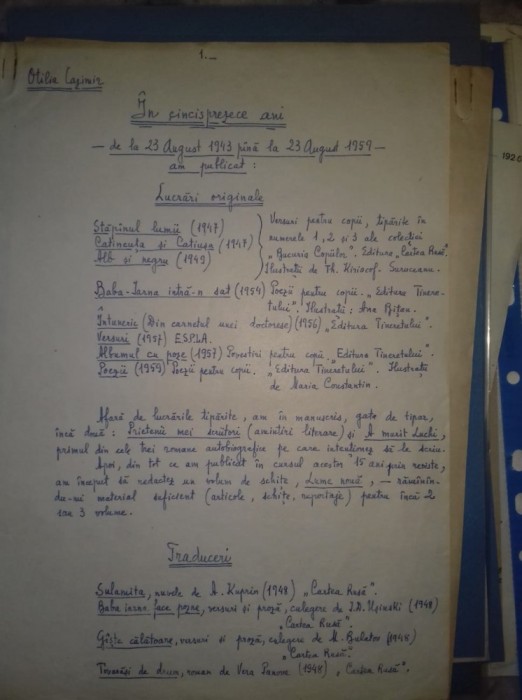 1.—
Otilia Cazimir
În cincisprezece ani
— de la 23 August 1943 pînă la 23 August 1959 —
am publicat :
Lucrări originale
Stăpînul lumii (1947)
Catincuța și Catiușa (1947)
Alb și negru (1949)
Versuri pentru copii, tipărite în
numerele 1, 2 și 3 ale colecției
„Bucuria Copiilor". Editura „Cartea Rusă".
Ilustrată de Th. Kiriacof - Suruceanu.
Baba-Iarna intră-n sat (1954) Poezii pentru copii. „Editura Tinere-
tului". Ilustrată : Ana Bițan.
Întuneric (Din carnetul unei doctorese) (1956) „Editura Tineretului".
Versuri (1957) ESPLA.
Albumul cu poze (1957) Povestiri pentru copii. „Editura Tineretului".
Poezii (1959) Poezii pentru copii. „Editura Tineretului". Ilustrată
de Maria Constantin.
Afară de lucrările tipărite, am în manuscris, gata de tipar,
încă două : Prietenii mei scriitori (amintiri literare) și A murit Luchi,
primul din cele trei romane autobiografice pe care intenționez să le scriu.
Apoi, din tot ce am publicat în cursul acestor 15 ani prin reviste,
am început să redactez un volum de schițe, Lume nouă, — rămînîn-
du-mi material suficient (articole, schițe, reportaje) pentru încă 2
sau 3 volume.
Traduceri
Sulamita, nuvele de A. Kuprin (1948) „Cartea Rusă".
Baba iarna face pozne, versuri și proză, culegere de I. D. Ușinski (1948)
„Cartea Rusă".
Gîște călătoare, versuri și proză, culegere de M. Bulatov (1948)
„Cartea Rusă".
Tovarăși de drum, roman de Vera Panova (1948), „Cartea Rusă".
192